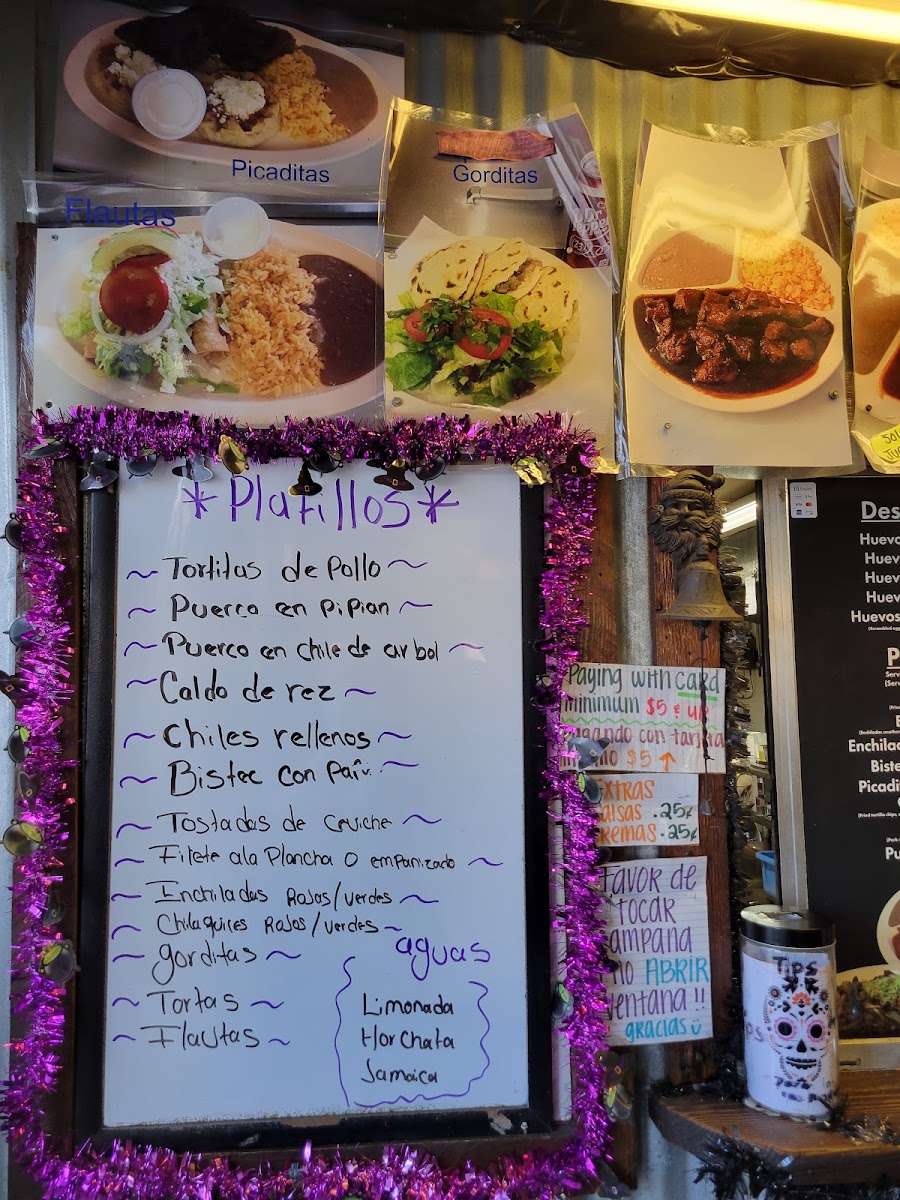 Picaditas
Gorditas
Flautas
Dr Pepper
*Platillos*
~ Tortitas de Pollo ~
~ Puerco en Pipian ~
~ Puerco en chile de arbol ~
~ Caldo de rez ~
~ Chiles rellenos ~
~ Bistec con
~ Tostadas de Ceviche ~
~ Filete ala Plancha o empanizado ~
~ Enchiladas Rojos/verdes ~
~ Chilaquires Rojos/verdes ~
~ gorditas ~
~ Tortas ~
~ Flautas ~
aguas
Limonada
Horchata
Jamaica
Paying with card
minimum $5 & up
con tarjeta
$5 ↑
EXTRAS
.25¢
.25¢
FAVOR DE
TOCAR
NO ABRIR
VENTANA!!
gracias
TIPS
Huevos
Enchila
Picadi